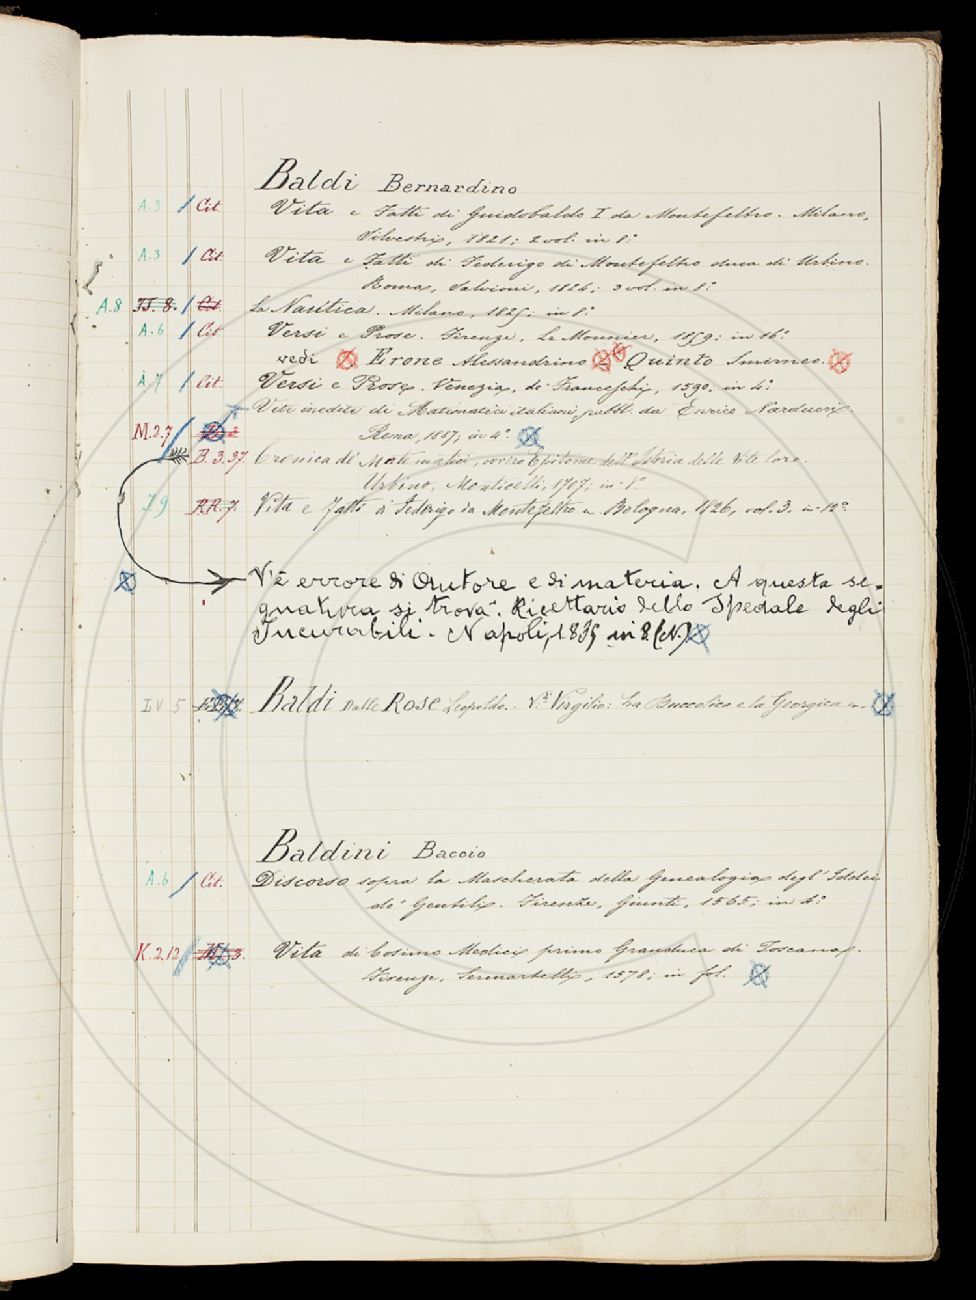 Baldi Bernardino
A.3 / Cit. Vita e Fatti di Guidobaldo I da Montefeltro. Milano,
Silvestri, 1821; 2 vol. in 8º
A.3 / Cit. Vita e Fatti di Federigo di Montefeltro duca di Urbino.
Roma, Salvioni, 1824; 3 vol. in 8º
A.8 II.8. / Cit. La Nautica. Milano, 1825; in 8º
A.6 / Cit Versi e Prose. Firenze, Le Monnier, 1859; in 16º
vedi Erone Alessandrino Quinto Smirneo.
A.7 / Cit. Versi e Prose. Venezia, de' Franceschi, 1590, in 4º
Vite inedite di Matematici italiani, pubbl. da Enrico Narducci.
M.2.7 / Roma, 1887, in 4º
B.3.37. Cronica de' Matematici, ovvero Epitome dell'Istoria delle Vite loro.
Urbino, Monticelli, 1707; in 4º
I.9 RR.7. Vita e fatti di Federigo da Montefeltro Bologna, 1826, vol. 3. in 12º
V'è errore di Autore e di materia. A questa se-
gnatura si trova: Ricettario dello Spedale degli
Incurabili. Napoli, 1835 in 8 (N.)
IV 5 Baldi Dalle Rose Leopoldo. V. Virgilio: La Buccolica e la Georgica
Baldini Baccio
A.6 / Cit. Discorso sopra la Mascherata della Genealogia degl' Iddei
de' Gentili. Firenze, Giunti, 1565; in 4º
K.2.12 Vita di Cosimo Medici primo Granduca di Toscana.
Firenze, Sermartelli, 1578; in fol.